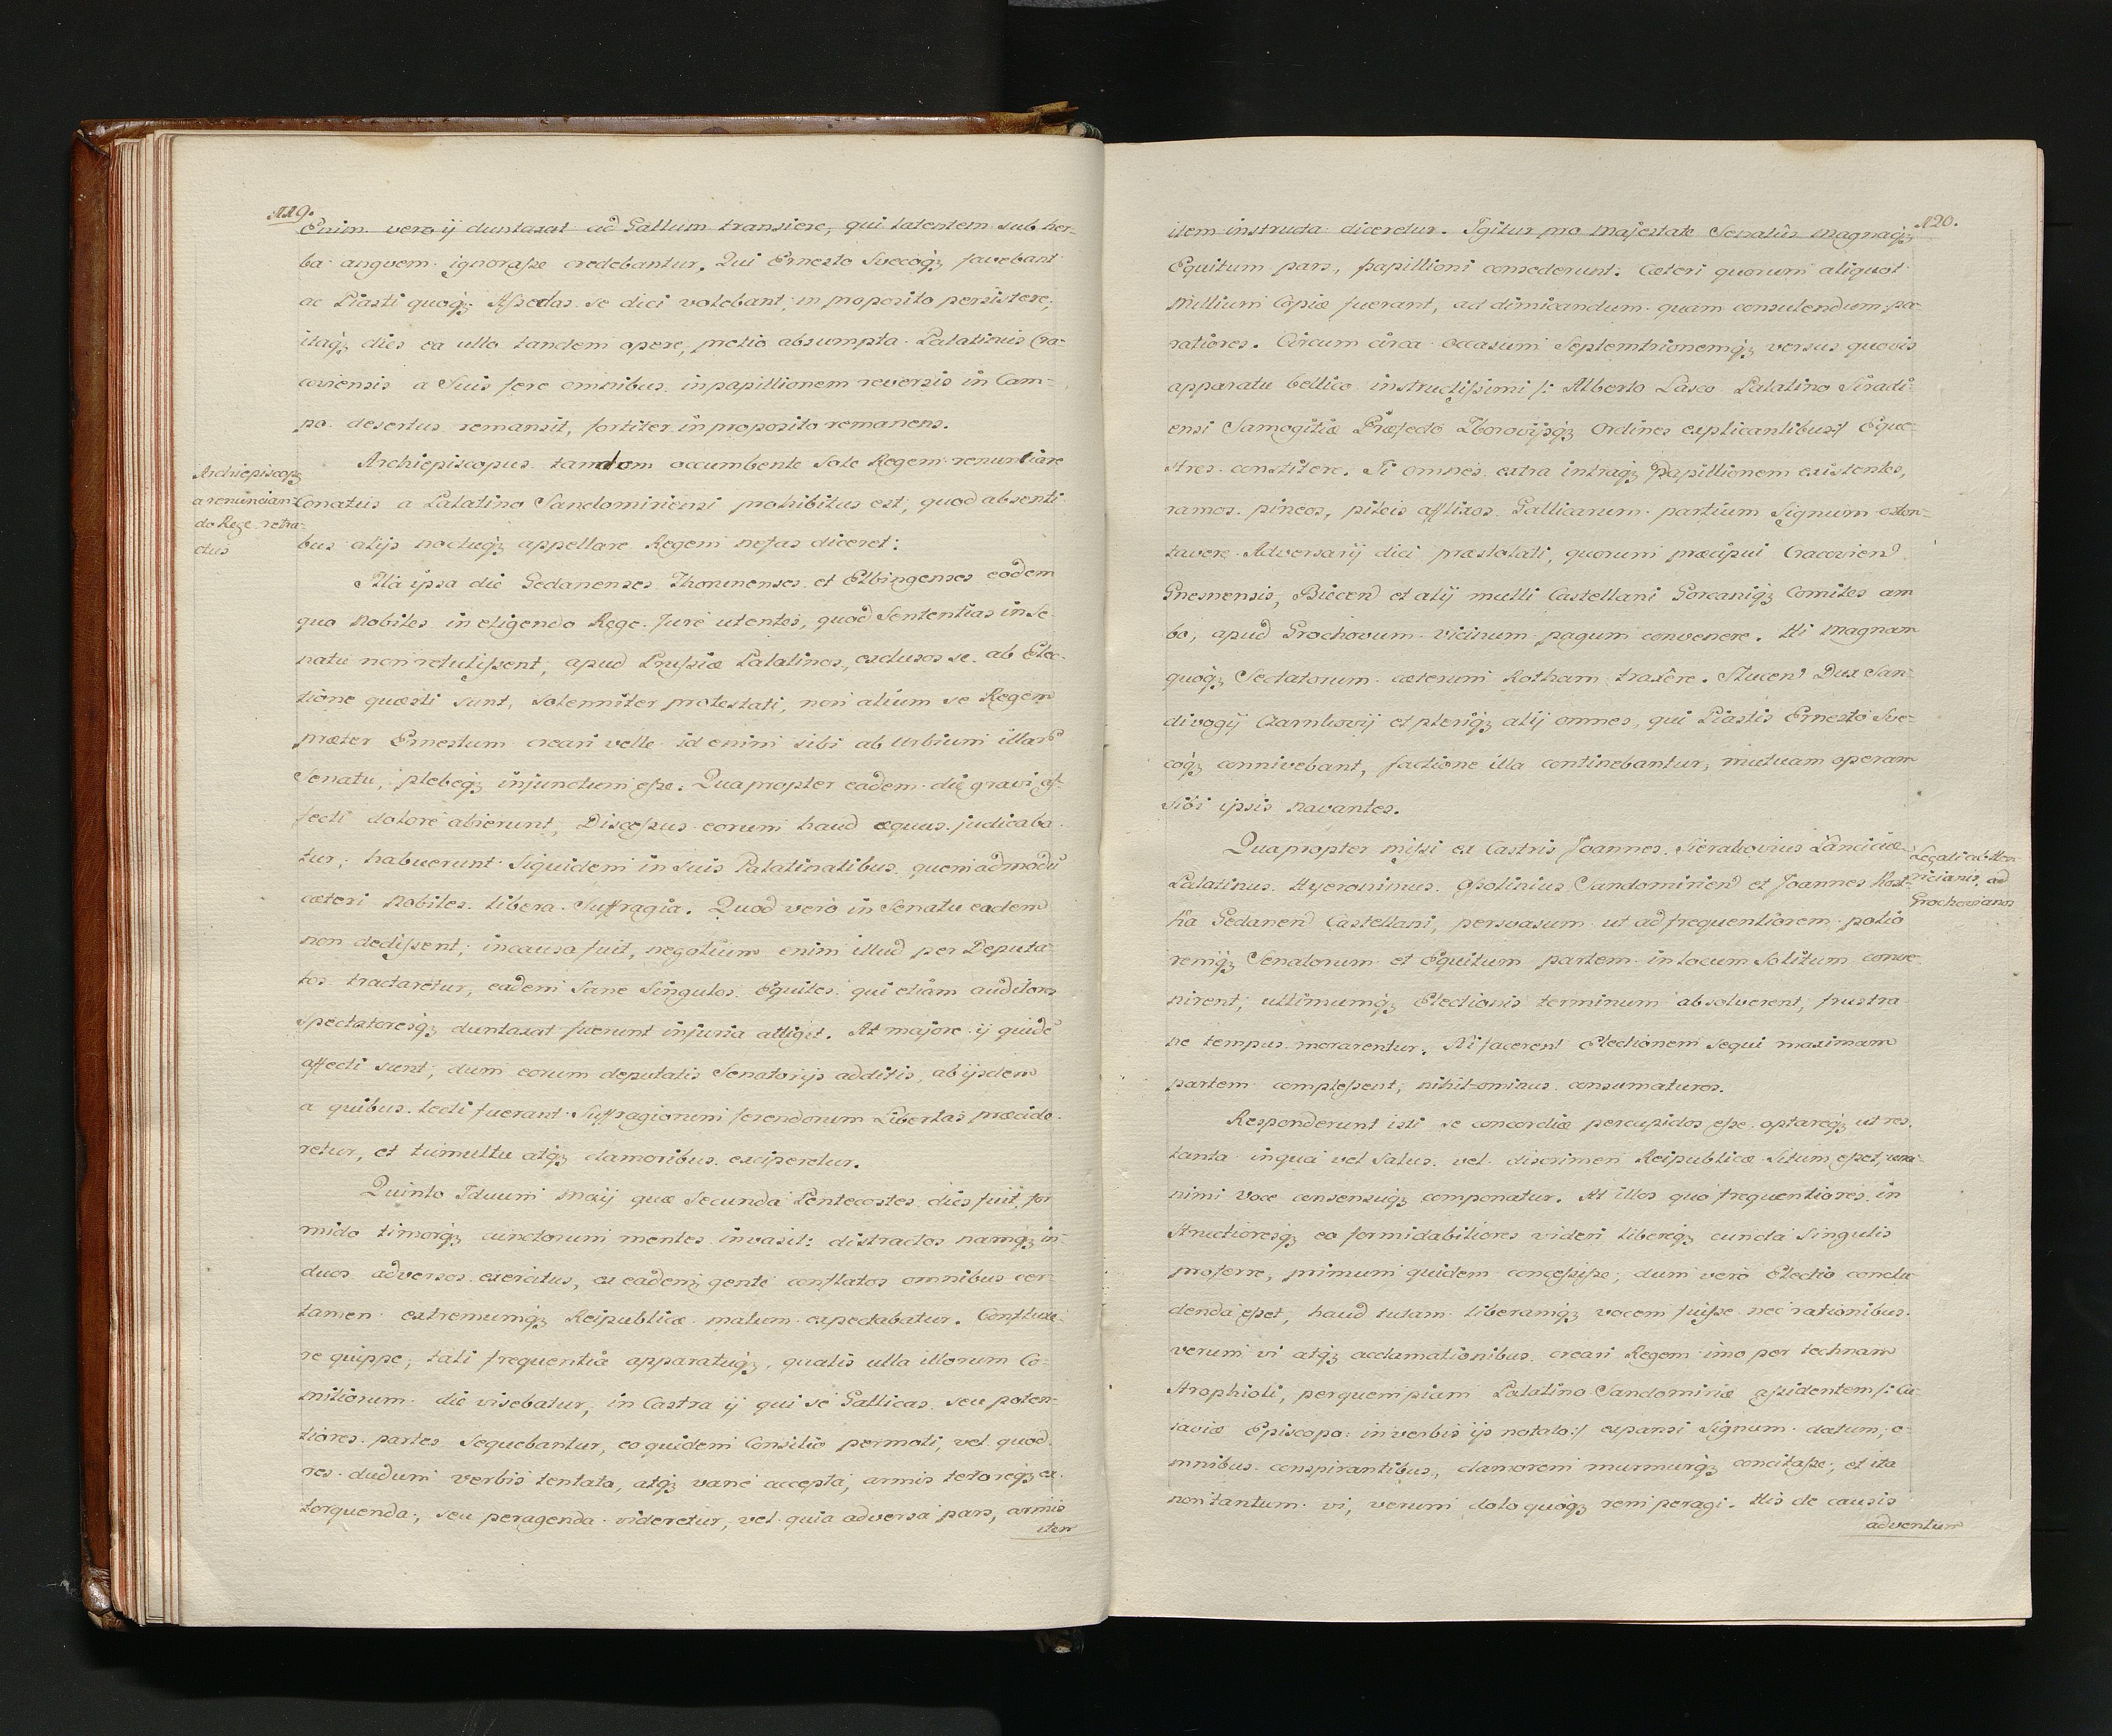 119.
Enim vero ij duntaxat ad Gallum transiere, qui latentem sub her-
ba anguem ignoraſse credebantur. Qui Ernesto Svecoq́ꝫ favebant
ac Piasti quoq́ꝫ Aſseclas se dici volebant, in proposito persistere,
itaq́ꝫ dies ea ullo tandem opere, pretio absumpta. Palatinus Cra-
coviensis a Suis fere omnibus in papillionem reversis in Cam-
po desertus remansit, fortiter in proposito remanens.
Archiepiscopꝫ
a renuncian-
do Rege retra-
ctus
Archiepiscopus tandem occumbente Sole Regem renuntiare
Conatus a Palatino Sandomiriensi prohibitus est, quod absenti
bus alijs noctuq́ꝫ appellare Regem nefas diceret:
Illa ipsa die Gedanenses Thorunenses et Elbingenses eodem
quo Nobiles in eligendo Rege Jure utentes, quod Sententias in Se-
natu non retulißent, apud Prußiæ Palatinos, exclusos se ab Elec-
tione quæsti sunt, Solenniter protestati, non alium se Regem
præter Ernestum creari velle id enim sibi ab Urbium illarũ
Senatu, plebeq́ꝫ injunctum eße. Quapropter eadem die gravi af-
fecti dolore abierunt, Discessus eorum haud æquus judicaba
tur, habuerunt Siquidem in Suis Palatinatibus quemadmodũ
cæteri Nobiles libera Suffragia. Quod vero in Senatu eadem
non dedißent, in causa fuit, negotium enim illud per Deputa-
tos tractaretur, eadem Sane Singulos Equites qui etiam auditores
Spectatoresq́ꝫ duntaxat fuerunt injuria attigit. At majore ij quidẽ
affecti sunt, dum eorum deputatis Senatorijs additis, ab ijsdem
a quibus lecti fuerant Suffragiorum ferendorum Libertas præcide-
retur, et tumultu atq́ꝫ clamoribus exciperetur.
Quinto Iduum Maij quæ Secunda Pentecostes dies fuit, for
mido timorq́ꝫ cunctorum mentes invasit: distractos namq́ꝫ in
duos adversos exercitus, ex eadem gente conflatos omnibus cer-
tamen extremumq́ꝫ Reipublicæ malum expectabatur. Confluxe-
re quippe, tali frequentia apparatuq́ꝫ, qualis ulla illorum Co-
mitiorum die visebatur, in Castra ij qui se Gallicas seu poten-
tiores partes Sequebantur, eo quidem Consilio permoti, vel quod
res dudum verbis tentata, atq́ꝫ vane accepta, armis teloreq́ꝫ ex-
torquenda, seu peragenda videretur, vel quia adversa pars, armis
item
120.
item instructa diceretur. Igitur pro Majestate Senatûs Magnaq́ꝫ
Equitum pars, papillioni consederunt. Cæteri quorum aliquot
Millium Copiæ fuerant, ad dimicandum quam consulendum pa-
ratiores. Circum circa occasum Septemtrionemq́ꝫ versus quovis
apparatu bellico instructißimi /: Alberto Lasco Palatino Siradi-
ensi Samogitiæ Præfecto Zborovijsq́ꝫ Ordines explicantibus :/ Eque-
stres constitere. Ii omnes extra intraq́ꝫ Papillionem existentes,
ramos pineos, pileis affixos Gallicanum partium Signum osten-
tavere. Adversarij dici præstolati, quorum præcipui Cracovien̄
Gnesnensis, Biecen̄ et alij multi Castellani Gorcaniq́ꝫ Comites am
bo, apud Grochovum vicinum pagum convenere. Hi magnam
quoq́ꝫ Sectatorum cæterum Rotham traxêre. Slucen̄ Dux San-
divogij Czarnkovij et pleriq́ꝫ alij omnes, qui Piastis Ernesto Sve-
coq́ꝫ connivebant, factione illa continebantur, mutuam operam
sibi ipsis navantes.
Legati ab Hen-
ricianis ad
Grochovianos
Quapropter mißi ex Castris Joannes Sierakovius Lanciciæ
Palatinus Hyeronimus Oßolinius Sandomirien̄ et Joannes Kost-
ka Gedanen̄ Castellani, persvasum ut ad frequentiorem potio
remq́ꝫ Senatorum et Equitum partem in locum Solitum conve-
nirent, ultimumq́ꝫ Electionis terminum absolverent, frustra
ne tempus morarentur. Ni facerent Electionem Sequi maximam
partem compleßent, nihil-ominus consumaturos.
Responderunt isti se concordiæ percupidos eße optareq́ꝫ ut res
tanta in qua vel Salus vel discrimen Reipublicæ Situm eßet, una-
nimi voce consensuq́ꝫ componatur. At illos quo frequentiores in
structioresq́ꝫ eo formidabiliores videri libereq́ꝫ cuncta Singulis
proferre, primum quidem conceßiße, dum vero Electio conclu
denda eßet, haud tutam liberamq́ꝫ vocem fuiße nec rationibus
verum vi atq́ꝫ acclamationibus creari Regem imo per technam
Strophioli, per quempiam Palatino Sandomiriæ aßidentem /: Cu-
javiæ Episcopo in verbis ijs notato :/ expansi Signum datum, o-
mnibus conspirantibus, clamorem murmurq́ꝫ concitaße, et ita
non tantum vi, verum dolo quoq́ꝫ rem peragi. His de causis
adventum